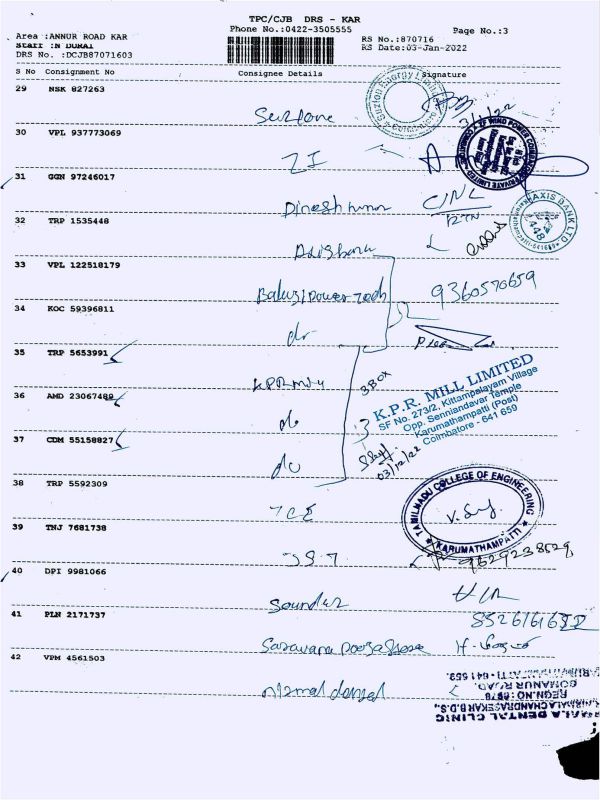 TPC/CJB DRS - KAR
Phone No.:0422-3505555
Page No.:3
Area :ANNUR ROAD KAR
Staff :N DURAI
DRS No. :DCJB87071603
RS No.:870716
RS Date:03-Jan-2022
S No Consignment No Consignee Details Signature
29 NSK 827263
Suzlone
30 VPL 937773069
ZI
31 GGN 97246017
Dinesh kumar
32 TRP 1535448
33 VPL 122518179
Balusi power tech 9360570659
34 KOC 59396811
do
35 TRP 5653991
KPR Mill
3 BOX
36 AMD 23067489
do
K.P.R. MILL LIMITED
SF No. 273/2, Kittampalayam Village
Opp. Senniandavar Temple
Karumathampatti (Post)
Coimbatore - 641 659
37 CDM 55158827
do
03/12/22
38 TRP 5592309
TCE
TAMILNADU COLLEGE OF ENGINEERING
KARUMATHAMPATTI
39 TNJ 7681738
9629238529
40 DPI 9981066
Sounder
41 PLN 2171737
Saravana poojastore
42 VPM 4561503
nirmal dental
AXIS BANK LTD
448
REGN.NO: 6970
GOMANUR ROAD,
DENTAL CLINIC